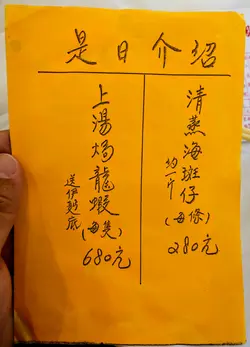 是日介紹
清蒸海斑仔(每條)280元
約一斤
上湯焗龍蝦(每隻)680元
送伊麵底